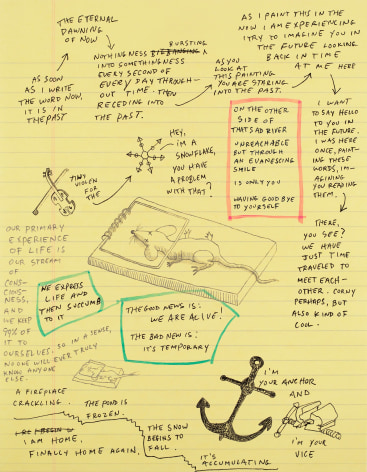 THE ETERNAL
DAWNING
OF NOW
AS SOON
AS I WRITE
THE WORD NOW,
IT IS IN
THE PAST
BURSTING
NOTHINGNESS
INTO SOMETHINGNESS
EVERY SECOND OF
EVERY DAY THROUGH-
OUT TIME. THEN
RECEDING INTO
THE PAST.
AS YOU
LOOK AT
THIS PAINTING
YOU ARE STARING
INTO THE PAST.
AS I PAINT THIS IN THE
NOW I AM EXPERIENCING
I TRY TO IMAGINE YOU IN
THE FUTURE LOOKING
BACK IN TIME
AT ME HERE
I WANT
TO SAY HELLO
TO YOU IN
THE FUTURE.
I WAS HERE
ONCE, PAINT-
ING THESE
WORDS, IM-
AGINING
YOU READING
THEM.
THERE,
YOU SEE?
WE HAVE
JUST TIME
TRAVELED TO
MEET EACH-
OTHER. CORNY
PERHAPS, BUT
ALSO KIND OF
COOL.
ON THE OTHER
SIDE OF
THAT SAD RIVER
UNREACHABLE
BUT THROUGH
AN EVANESCING
SMILE
IS ONLY YOU
WAVING GOODBYE
TO YOURSELF
HEY,
I'M A
SNOWFLAKE,
YOU HAVE
A PROBLEM
WITH THAT?
TINY
VIOLEN
FOR THE
OUR PRIMARY
EXPERIENCE
OF LIFE IS
OUR STREAM
OF
CONS-
CIOUS-
NESS,
AND
WE KEEP
99% OF
IT TO
OURSELVES. SO IN A SENSE,
NO ONE WILL EVER TRULY
KNOW ANYONE
ELSE.
WE EXPRESS
LIFE AND
THEN SUCCUMB
TO IT
THE GOOD NEWS IS:
WE ARE ALIVE!
THE BAD NEWS IS:
IT'S TEMPORARY
A FIREPLACE
CRACKLING.
THE POND IS
FROZEN.
I AM HOME,
FINALLY HOME AGAIN,
THE SNOW
BEGINS TO
FALL.
IT'S
ACCUMULATING.
I'M
YOUR ANCHOR
AND
I'M YOUR
VICE